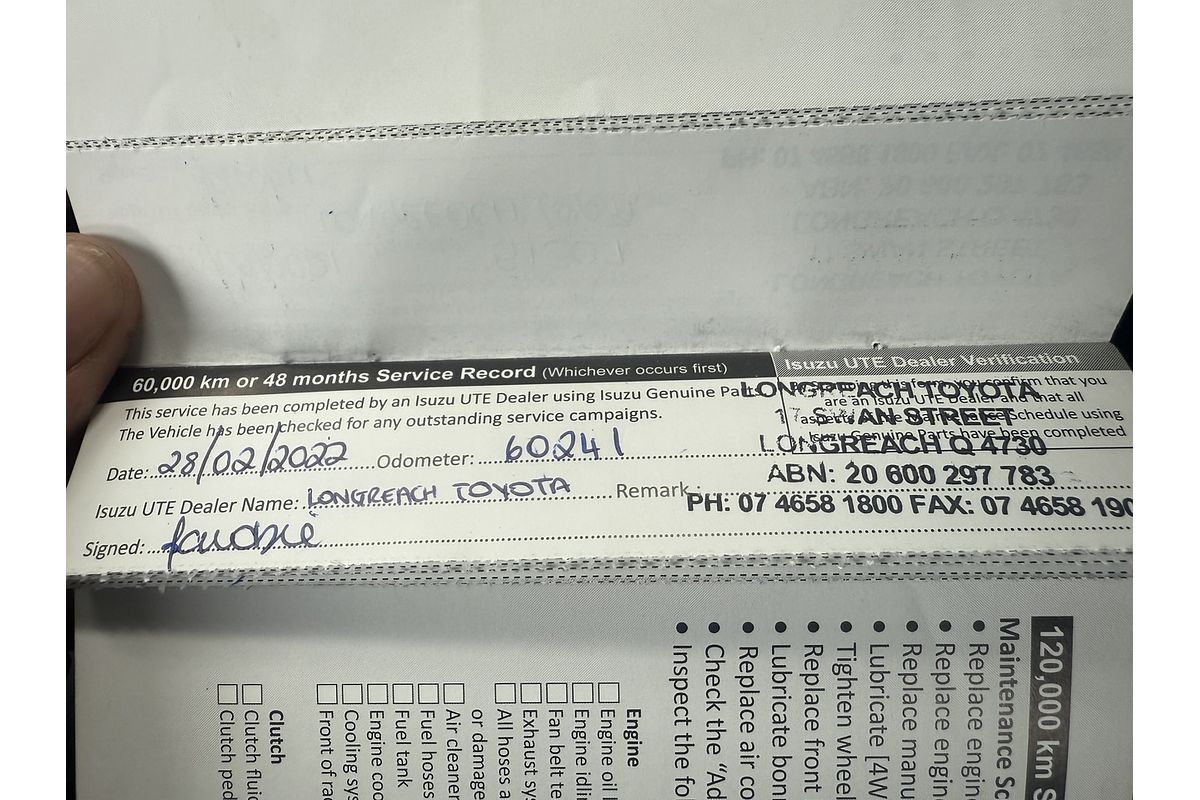 60,000 km or 48 months Service Record (Whichever occurs first)
This service has been completed by an Isuzu UTE Dealer using Isuzu Genuine Parts
The Vehicle has been checked for any outstanding service campaigns.
Date: 28/02/2022 Odometer: 60241
Isuzu UTE Dealer Name: LONGREACH TOYOTA Remark:
Signed:
Isuzu UTE Dealer Verification
this form, you confirm that you
are an Isuzu UTE Dealer and that all
aspects Schedule using
Isuzu Genuine Parts have been completed
LONGREACH TOYOTA
17 SWAN STREET
LONGREACH Q 4730
ABN: 20 600 297 783
PH: 07 4658 1800 FAX: 07 4658 190
120,000 km S
Maintenance Sc
• Replace engin
• Replace engin
• Replace manu
• Lubricate [4W
• Tighten wheel
• Replace front
• Lubricate bonn
• Replace air co
• Check the “Ad
• Inspect the fo
Engine
Engine oil l
Engine idlin
Fan belt te
Exhaust sys
All hoses a
or damage
Air cleaner
Fuel hoses
Fuel tank
Engine coo
Cooling sys
Front of rad
Clutch
Clutch fluid
Clutch ped